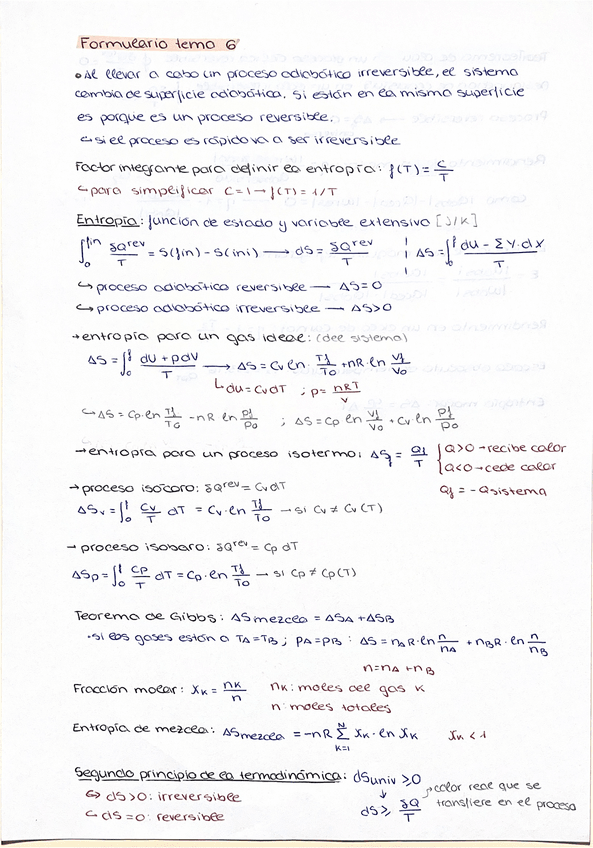 Formulario tema 6
• Al llevar a cabo un proceso adiabático irreversible, el sistema
cambia de superficie adiabática. Si están en la misma superficie
es porque es un proceso reversible.
↪ si el proceso es rápido va a ser irreversible
Factor integrante para definir la entropía: f(T) = C/T
↪ para simplificar C=1 → f(T) = 1/T
Entropía: función de estado y variable extensiva [J/K]
∫₀^fin δQ^rev/T = S(fin) - S(ini) → dS = δQ^rev/T ¦ ΔS = ∫₀^f (dU - ΣY·dX)/T
↪ proceso adiabático reversible — ΔS=0
↪ proceso adiabático irreversible — ΔS>0
→ entropía para un gas ideal: (del sistema)
ΔS = ∫₀^f (dU + pdV)/T → ΔS = Cv ln Tf/T0 + nR ln Vf/V0
↳ dU = CvdT ; p = nRT/V
↪ ΔS = Cp·ln Tf/T0 - nR ln Pf/P0 ; ΔS = Cp ln Vf/V0 + Cv ln Pf/P0
→ entropía para un proceso isotermo: ΔSf = Qf/T { Q>0 → recibe calor
Q<0 → cede calor
Qf = -Qsistema
→ proceso isócoro: δQ^rev = CvdT
ΔSv = ∫₀^f Cv/T dT = Cv·ln Tf/T0 → si Cv ≠ Cv(T)
→ proceso isobaro: δQ^rev = Cp dT
ΔSp = ∫₀^f Cp/T dT = Cp·ln Tf/T0 → si Cp ≠ Cp(T)
Teorema de Gibbs: ΔSmezcla = ΔSA + ΔSB
· si los gases están a TA = TB ; pA = pB : ΔS = nAR·ln n/nA + nBR·ln n/nB
n = nA + nB
Fracción molar: XK = nK/n nK: moles del gas K
n: moles totales
Entropía de mezcla: ΔSmezcla = -nR Σ(K=1→N) XK·ln XK XK < 1
Segundo principio de la termodinámica: dSuniv ≥ 0
↪ dS>0: irreversible
↪ dS=0: reversible
dS ≥ δQ/T
calor real que se
transfiere en el proceso